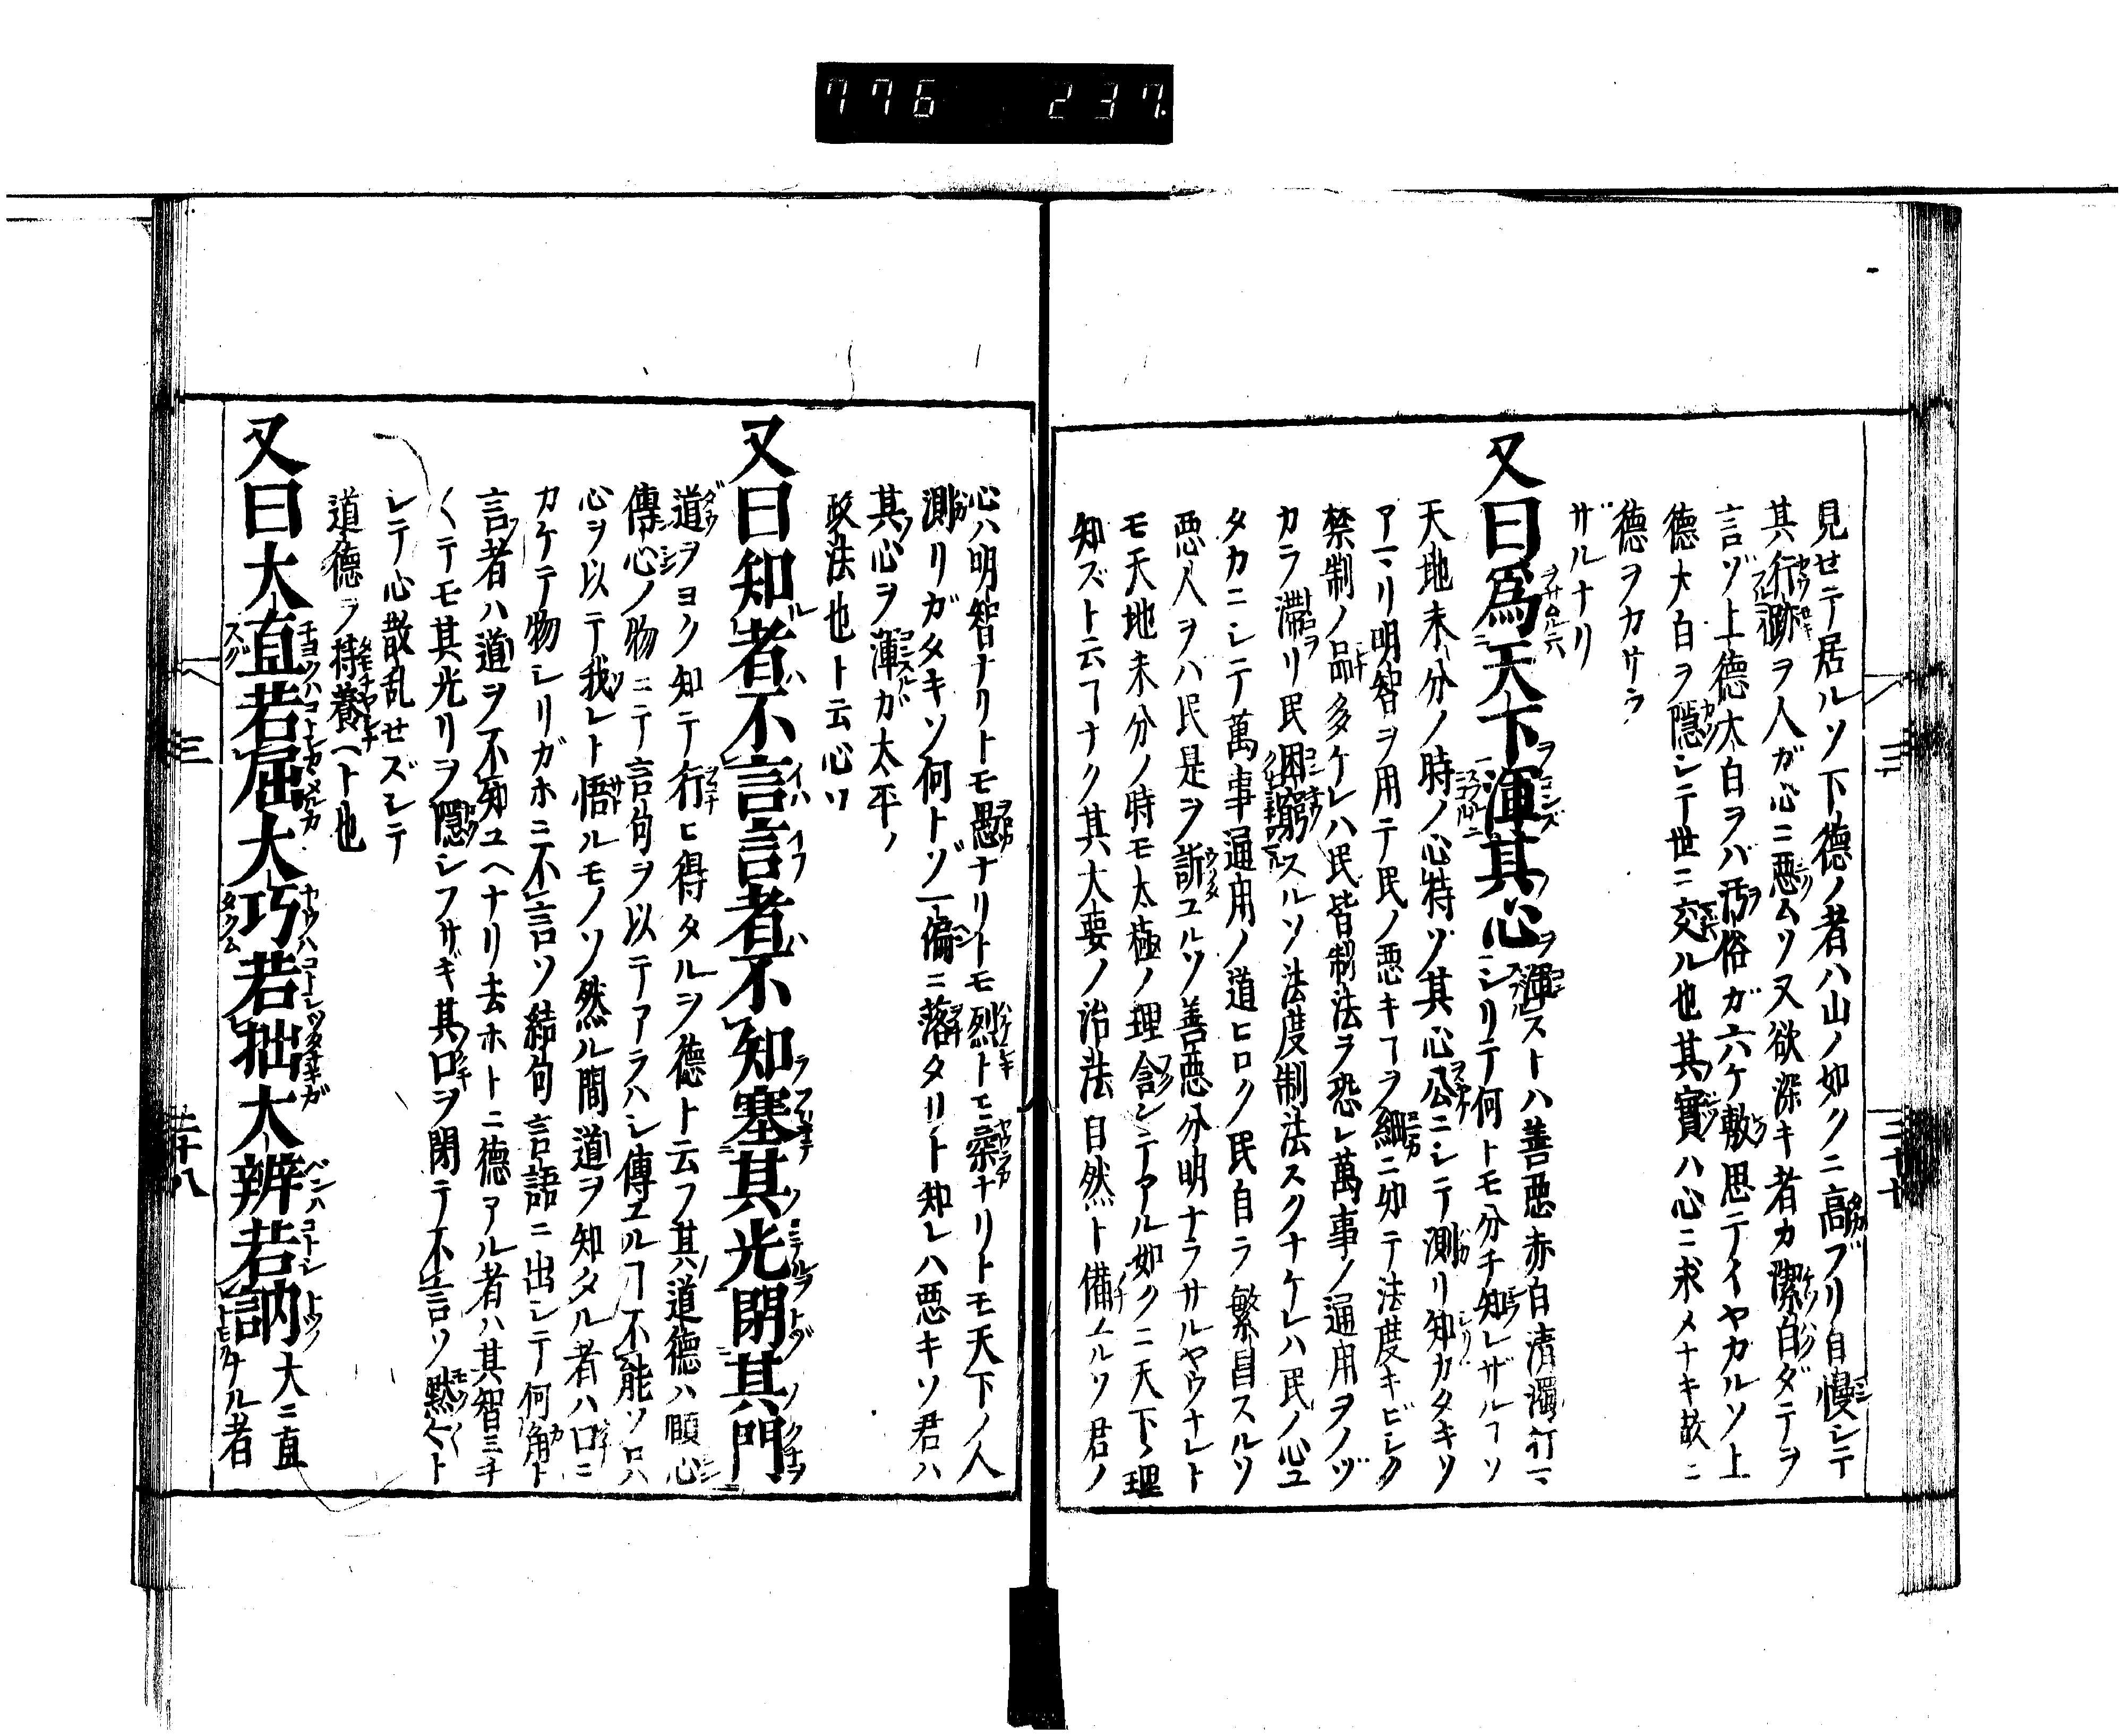 776 237.
見セテ居ルソ下德ノ者ハ山ノ如クニ高ブリ自慢シテ
其行跡ヲ人ガ心ニ悪ムソ又欲深キ者カ潔白ダテヲ
言ゾ上德大白ヲバ汚俗ガ六ケ敷思テイヤガルソ上
德大白ヲ隱シテ世ニ交ル也其實ハ心ニ求メナキ故ニ
德ヲカサラ
ザルナリ
又曰爲天下渾其心 渾ストハ善悪赤白清濁打マ
シリテ何トモ分チ知レザルヿソ
天地未分ノ時ノ心持ゾ其心公ニシテ測リ知カタキソ
アマリ明智ヲ用テ民ノ悪キヿヲ細ニ知テ法度キビシク
禁制ノ品多ケレハ民皆制法ヲ恐レ萬事ノ通用ヲノヅ
カラ滯リ民困窮スルソ法度制法スクナケレハ民ノ心ユ
タカニシテ萬事通用ノ道ヒロク民自ラ繁昌スルソ
悪人ヲハ民是ヲ訴ユルソ善悪分明ナラサルヤウナレト
モ天地未分ノ時モ太極ノ理含シテアル如クニ天下ノ理
知ズト云ヿナク其大要ノ治法自然ト備ハルソ君ノ
三 三十七
心ハ明智ナリトモ愚ナリトモ烈トモ柔ナリトモ天下ノ人
測リガタキソ何トゾ一偏ニ落タリト知レハ悪キソ君ハ
其心ヲ渾ガ太平ノ
政法也ト云心ソ
又曰知者不言言者不知塞其光閉其門
道ヲヨク知テ行ヒ得タルヲ德ト云フ其道德ハ願心
傳心ノ物ニテ言句ヲ以テアラハシ傳ユルヿ不能ソ只
心ヲ以テ我レト悟ルモノソ然ル間道ヲ知タル者ハ口ニ
カケテ物シリガホニ不言ソ結句言語ニ出シテ何角ト
言者ハ道ヲ不知ユヘナリ去ホトニ德アル者ハ其智ミチ
〱テモ其光リヲ隱シフサギ其口ヲ閉テ不言ソ黙々ト
シテ心散乱セズシテ
道德ヲ持養ヘト也
又曰大直若屈大巧若拙大辨若訥 大ニ直
ナル者
三 三十八